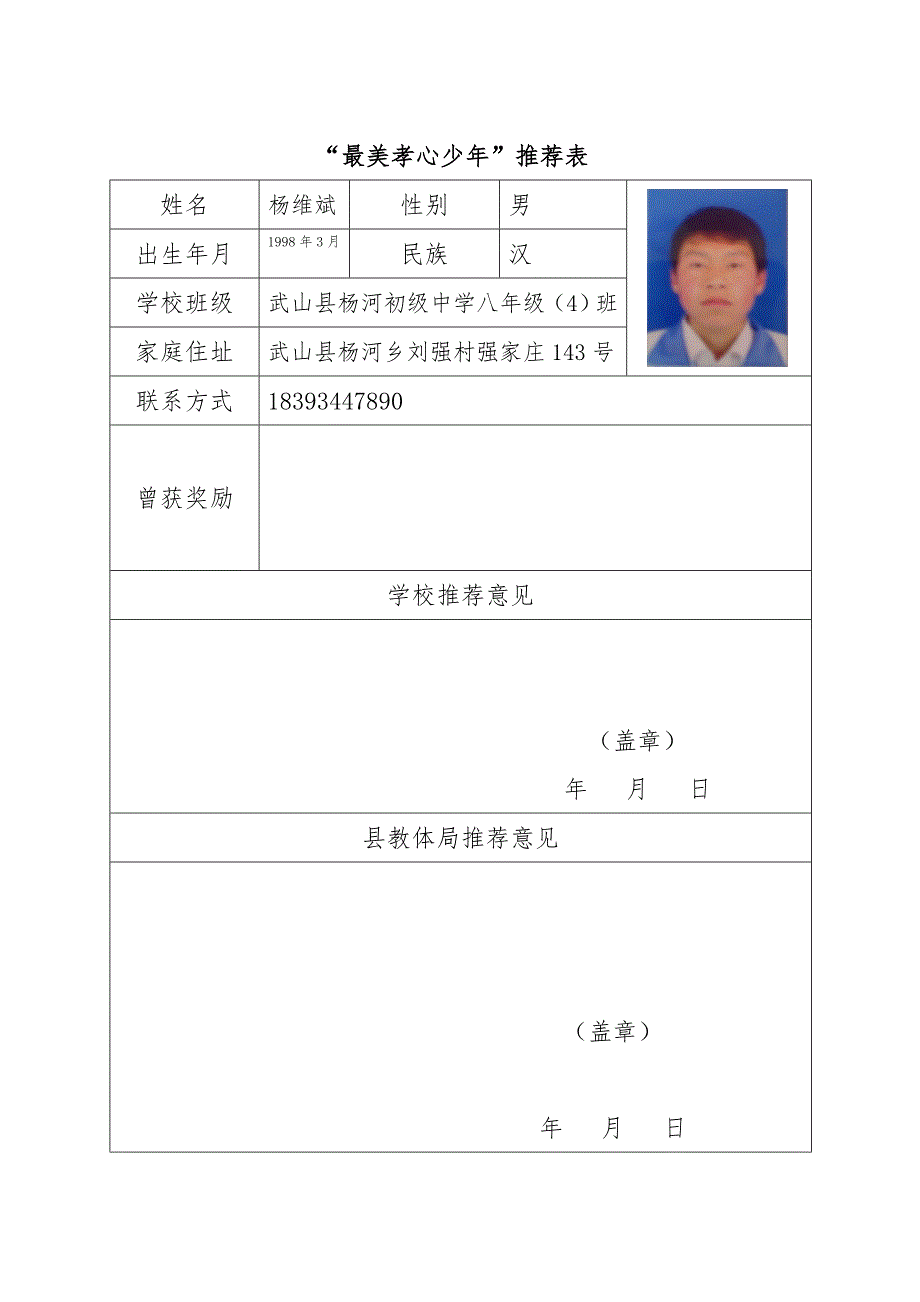 “最美孝心少年”推荐表
姓名 杨维斌 性别 男
出生年月 1998年3月 民族 汉
学校班级 武山县杨河初级中学八年级（4）班
家庭住址 武山县杨河乡刘强村强家庄143号
联系方式 18393447890
曾获奖励
学校推荐意见
（盖章）
年 月 日
县教体局推荐意见
（盖章）
年 月 日